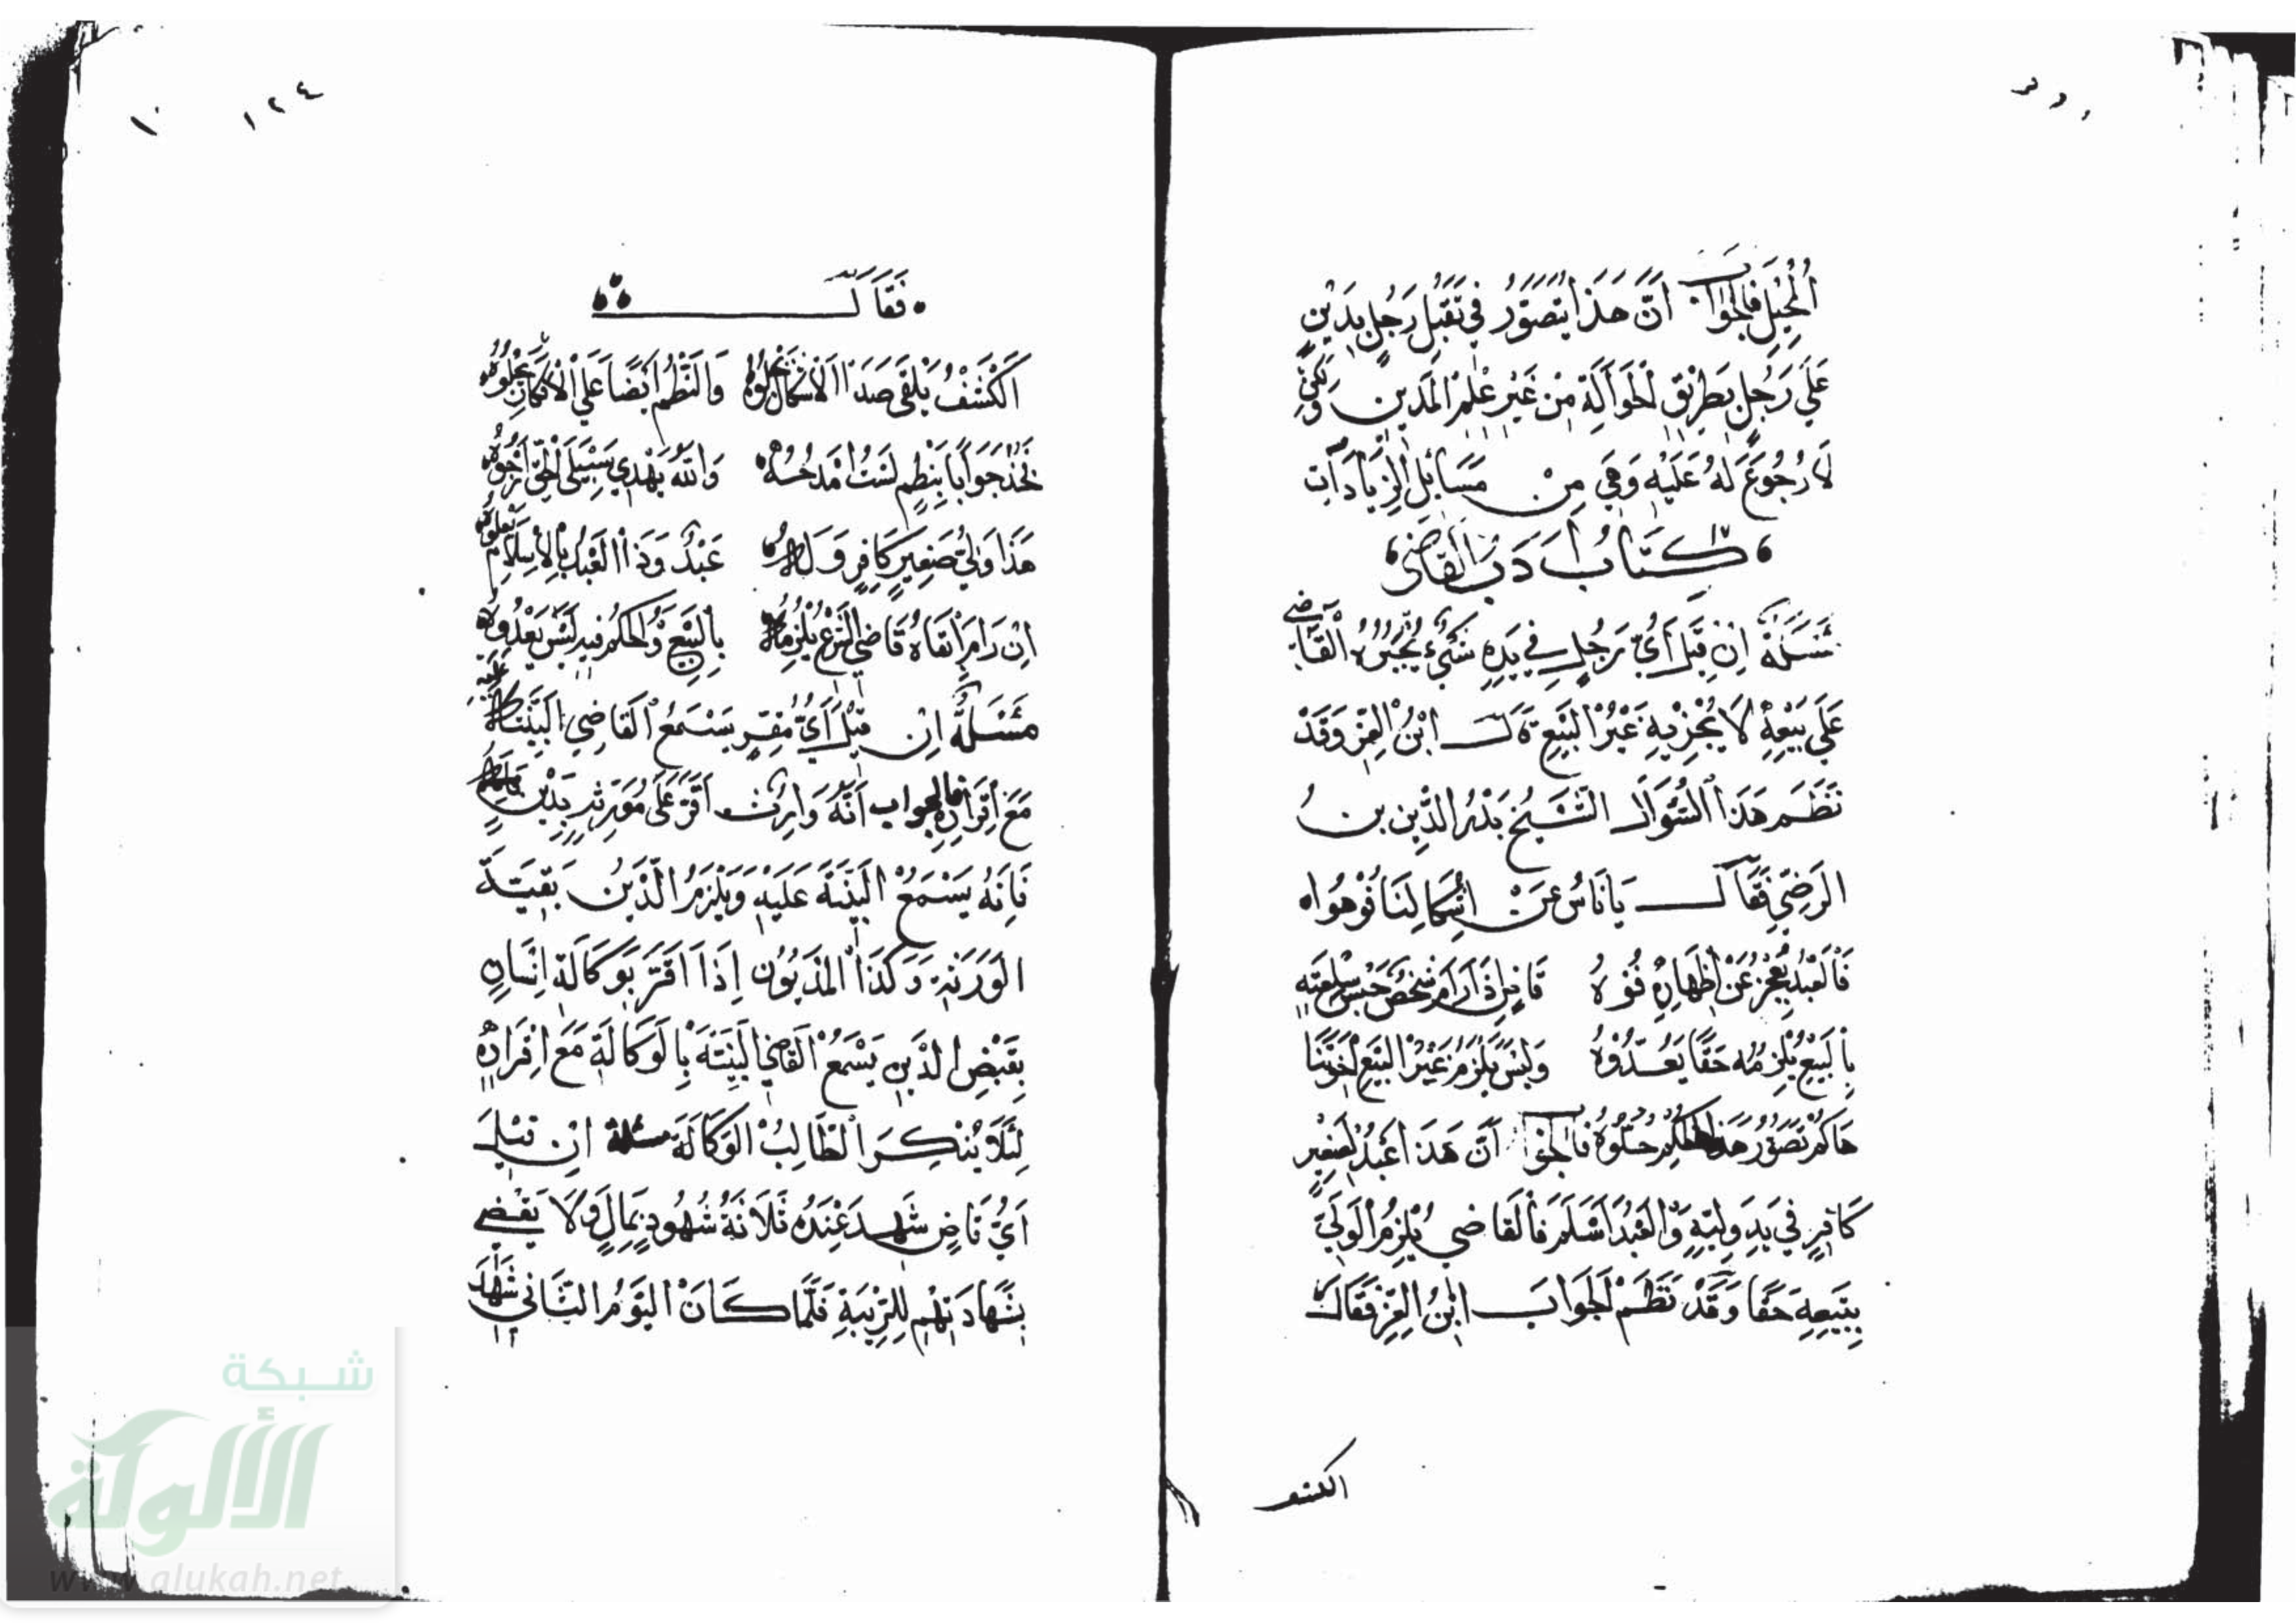 المحيل فالجواب أنّ هذا يتصوّر في تقبّل رجل بدين
على رجل بطريق الحوالة من غير علم المدين
لا رجوع له عليه وهي من مسائل الزيادات
كتاب أدب القاضي
مسئلة إن قيل أيّ رجل في يده شيء يجبره القاضي
على بيعه لا يجزيه غير البيع قال ابن العز وقد
نظم هذا السؤال الشيخ بدر الدين بن
الرضي فقال يا ناس عن اشكالنا فوهوا
فالعبد يعجز عن اظهاره فوه إذا رام شخص حبس سلعته
بالبيع يلزمه حقا وليس يلزم غير البيع
هاكم تصور هذا الحكم فالجواب أنّ هذا عبد لصغير
كافر في يد وليه والعبد أسلم فالقاضي يلزم الولي
ببيعه حقا وقد نظم الجواب ابن العز فقال
الكشف
١٢٤
فقال
الكشف يلقى صدا الاشكال والنظم ايضا على
خذ جوابا بنظم لست امدحه والله يهدي سبيل
هذا ولي صغير كافر وله عبد وذا العبد بالاسلام
ان رام ابقاه قاضي الشرع يلزمه بالبيع والحكم فيه ليس
مسئلة إن قيل أيّ مقر يسمع القاضي البينة عليه
مع إقراره فالجواب أنّه وارث أقر على مورثه بدين
فإنه يسمع البينة عليه ويلزم الدين بقية
الورثة وكذا المديون إذا أقر بوكالة إنسان
بقبض الدين يسمع القاضي البينة بالوكالة مع إقراره
لئلا ينكر الطالب الوكالة مسئلة إن قيل
أيّ قاض شهد عنده ثلاثة شهود بمال ولا يقضي
بشهادتهم للريبة فلما كان اليوم الثاني شهد
شبكة
الألوكة
www.alukah.net